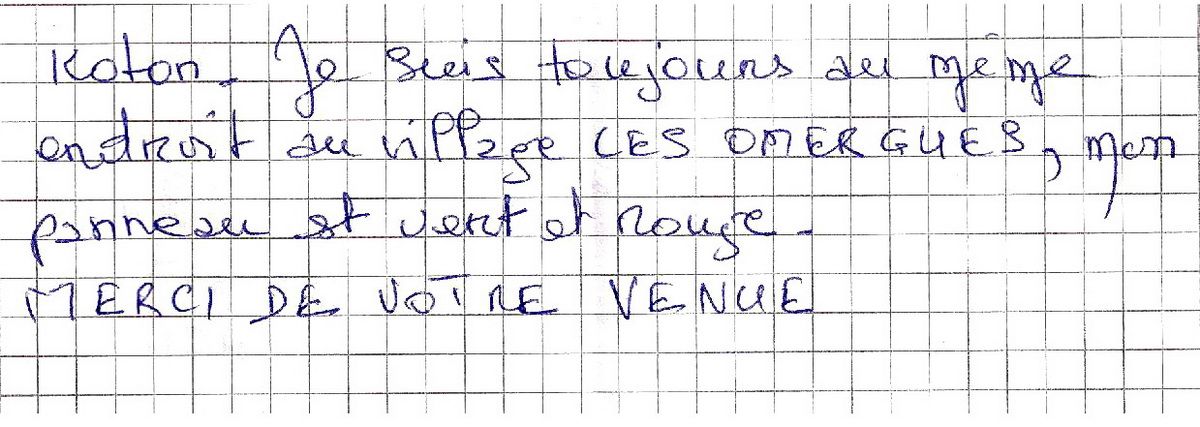 Koton. Je suis toujours au même
endroit au village LES OMERGUES, mon
panneau est vert et rouge.
MERCI DE VOTRE VENUE